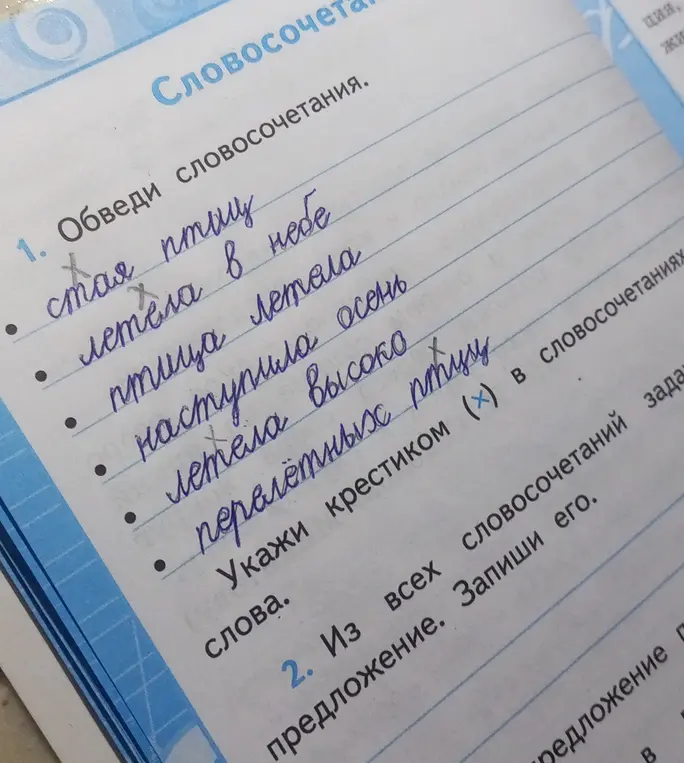 Словосочета
1. Обведи словосочетания.
• стая птиц
• летела в небе
• птица летела
• наступила осень
• летела высоко
• перелётных птиц
Укажи крестиком (х) в словосочетаниях
слова.
2. Из всех словосочетаний
предложение. Запиши его.
в